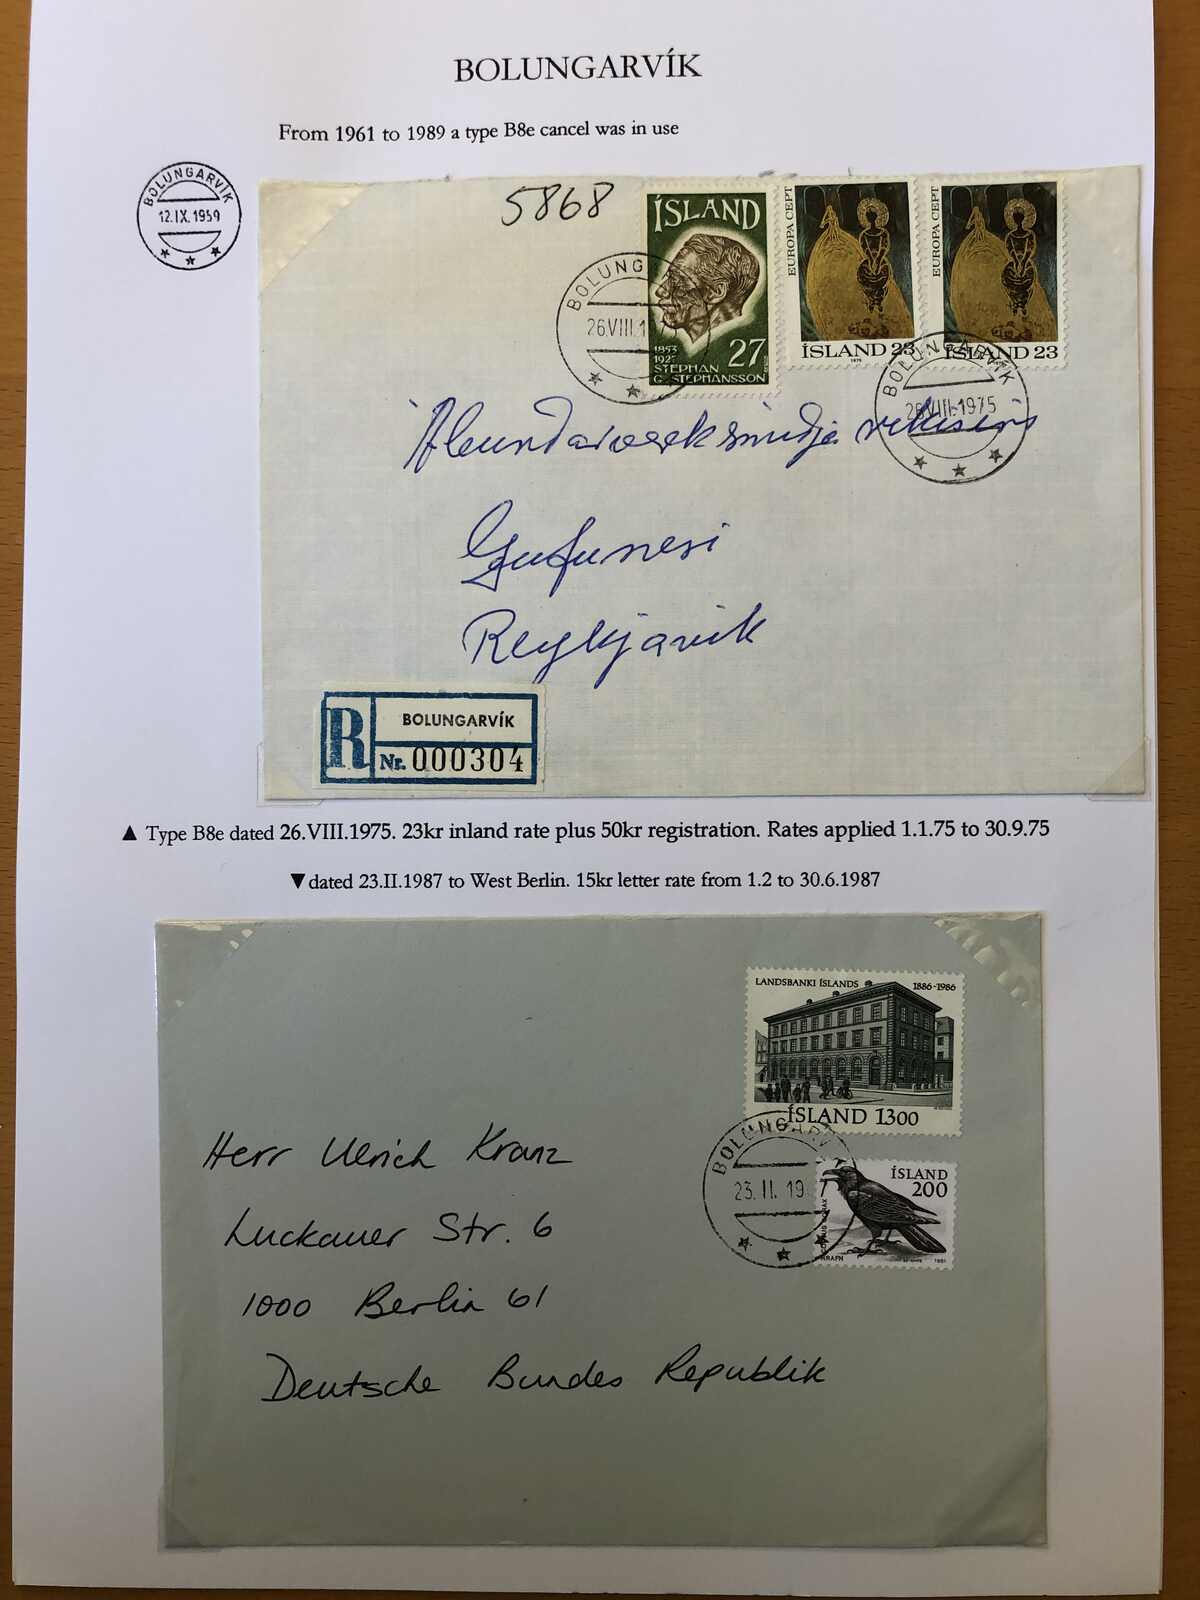 BOLUNGARVÍK
From 1961 to 1989 a type B8e cancel was in use
BOLUNGARVÍK
12.IX.1959
5868
ÍSLAND
1853
1927
27
STEPHAN
G. STEPHANSSON
EUROPA CEPT
ÍSLAND 23
1975
EUROPA CEPT
ÍSLAND 23
BOLUNG
26.VIII.1975
BOLUNGARVÍK
26.VIII.1975
Gufunesi
Reykjavik
R
BOLUNGARVÍK
Nr. 000304
▲ Type B8e dated 26.VIII.1975. 23kr inland rate plus 50kr registration. Rates applied 1.1.75 to 30.9.75
▼ dated 23.II.1987 to West Berlin. 15kr letter rate from 1.2 to 30.6.1987
LANDSBANKI ÍSLANDS 1886-1986
ÍSLAND 1300
BOLUNGARV
23.II.19
ÍSLAND
200
HRAFN
1981
Herr Ulrich Kranz
Luckauer Str. 6
1000 Berlin 61
Deutsche Bundes Republik